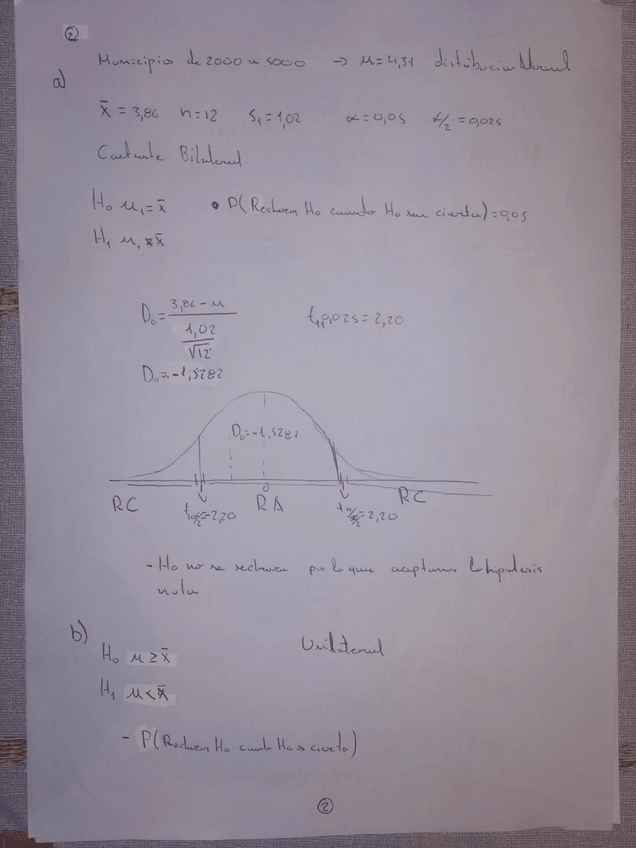 ②
Municipios de 2000 a 5000 → μ=4,31 distribución Normal
a)
x̄=3,86 n=12 s₁=1,02 α=0,05 α/2=0,025
Contraste Bilateral
H₀ μ₁=x̄ • P(Rechazar H₀ cuando H₀ sea cierta)=0,05
H₁ μ₁≠x̄
D₀= 3,86-μ / 1,02/√12 t₁₁0,025=2,20
D₀=-1,5282
D₀=-1,5282
0
RC =2,20 RA =2,20 RC
- H₀ no se rechaza por lo que aceptamos la hipotesis
nula
b)
Unilateral
H₀ μ≥x̄
H₁ μ<x̄
- P(Rechazar H₀ cuando H₀ es cierto)
②